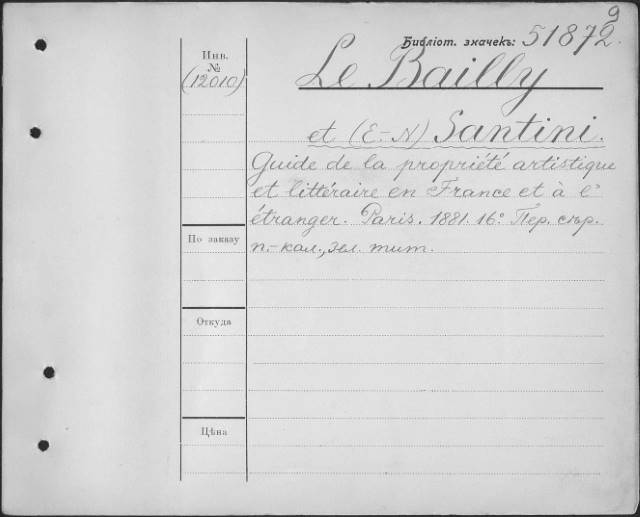 9
Библіот. значекъ: 51872.
Инв.
№
(12010)
Le Bailly
et (E.-N) Santini.
Guide de la propriété artistique
et littéraire en France et à l'
étranger. Paris. 1881. 16º. Пер. сѣр.
п.-кал., зел. тит.
По заказу
Откуда
Цѣна